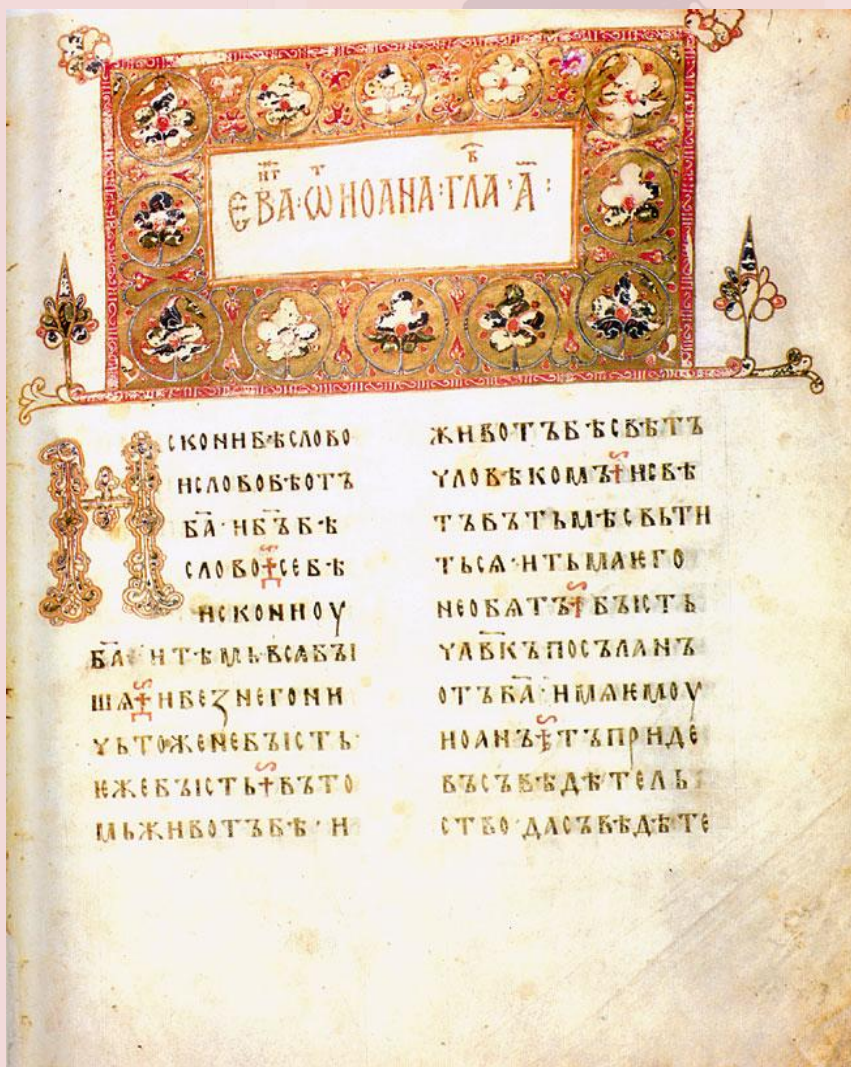 ЕВА҃·Ѿ ИОАНА·ГЛА·А҃:
ИСКОНИБѢСЛОВО
ИСЛОВОБѢОТЪ
БА҃·ИБЪ҃БѢ
СЛОВО СЕБѢ
ИСКОНИОУ
БА҃ ИТѢМЬВСѦБЪІ
ШѦ ИБЕЗНЕГОНИ
ЧЬТОЖЕНЕБЪІСТЬ·
ѤЖЕБЪІСТЬ ВЪТО
МЬЖИВОТЪБѢ·И
ЖИВОТЪБѢСВѢТЪ
ЧЛОВѢКОМЪ ИСВѢ
ТЪВЪТЬМѢСВЬТИ
ТЬСѦ·ИТЬМАѤГО
НЕОБѦТЪ БЪІСТЬ
ЧЛВ҃КЪПОСЪЛАНЪ
ОТЪБА҃·ИМѦѤМОУ
ИОАНЪ ТЪПРИДЕ
ВЪСЪВѢДѢТЕЛЬ
СТВО·ДАСЪВѢДѢТЕ